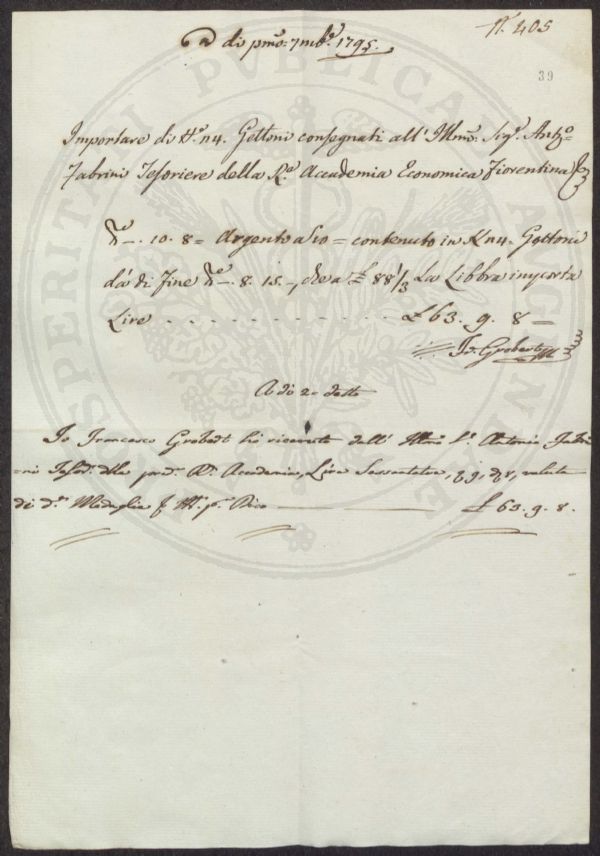 N.º 405
A di pmo: 7mbre 1795.
39
Importare di Nº n4. Gettoni consegnati all' Illmo: Sigr. Antº
Fabrini Tesoriere della Rle Accademia Economica Fiorentina
10. 8 = Argento a = contenuto in n4. Gettoni
dà di Fine 8. 15 -, che a £ 88 1/3 La Libbra importa
Lire - - - - - - - - - - - - - - £ 63. 9. 8 =
Grobert
A di 2. detto
Io Francesco Grobert ho ricevuto dall' Illmo Sr. Antonio Fabri
=ni Tesore. della pred. Rle Accademia, Lire Sessantatre, 9, 8, valuta
di de. Medaglie £ 63. 9. 8.
PROSPERITATI PUBLICAE AUGENDAE